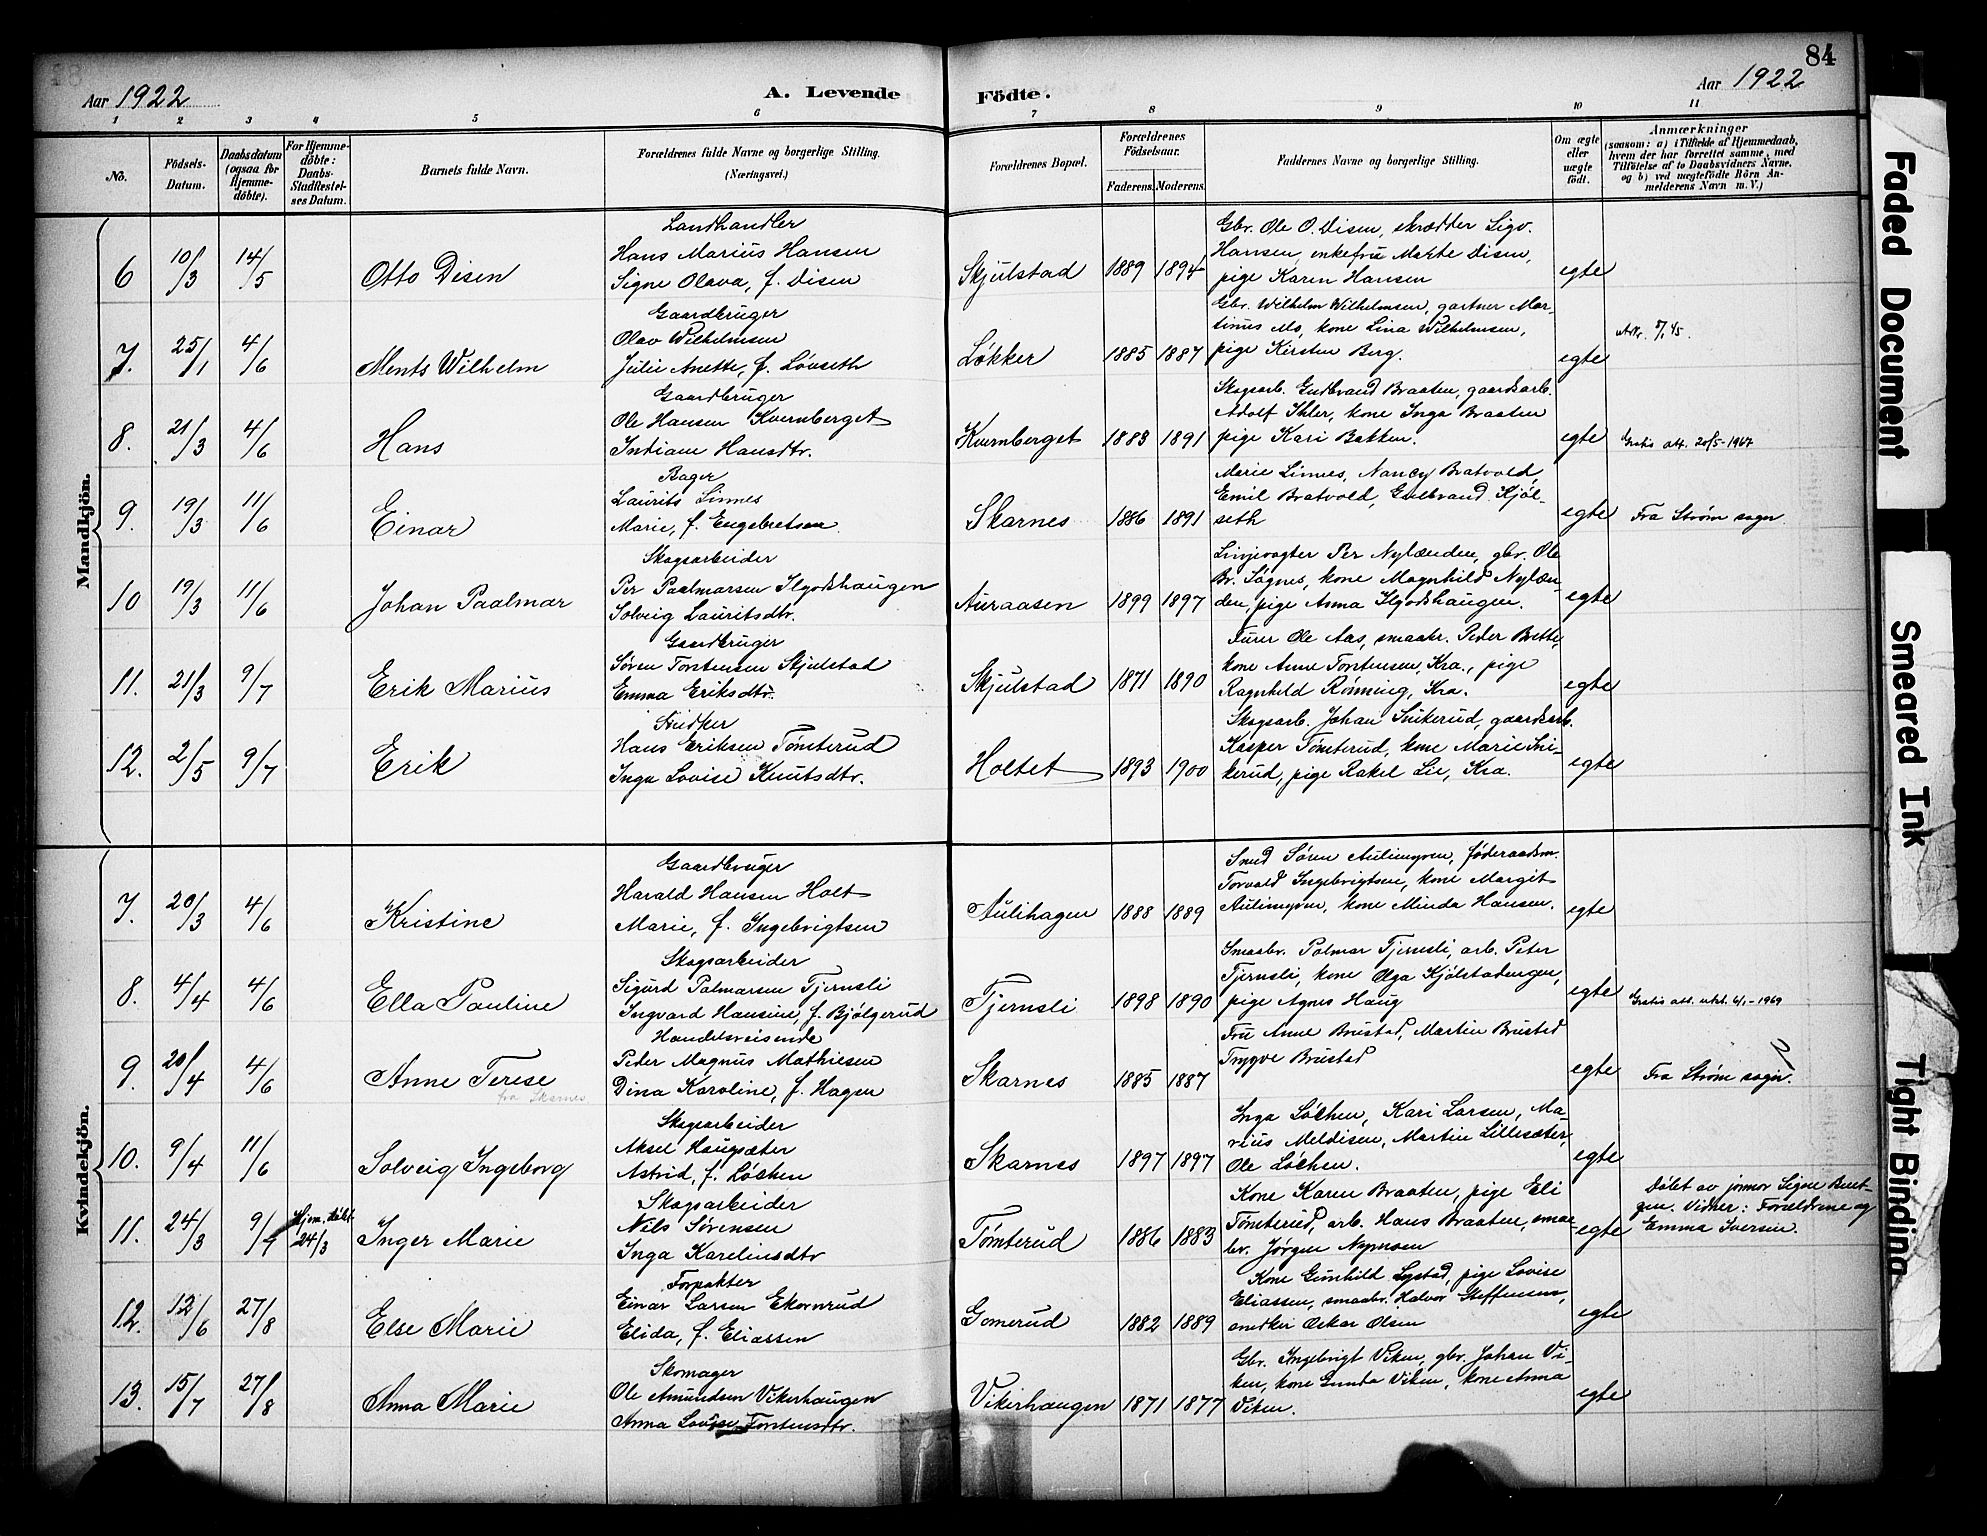 84
Aar 1922
A. Levende Födte.
Aar 1922
1 2 3 4 5 6 7 8 9 10 11
No.
Födsels-
Datum.
Daabsdatum
(ogsaa for
Hjemme-
döbte).
For Hjemme-
döbte:
Daabs-
Stadfæstel-
ses Datum.
Barnets fulde Navn.
Forældrenes fulde Navne og borgerlige Stilling.
(Næringsvei.)
Forældrenes Bopæl.
Forældrenes
Födselsaar.
Faderens. Moderens.
Faddernes Navne og borgerlige Stilling.
Om ægte
eller
uægte
født.
Anmærkninger
(saasom: a) i Tilfælde af Hjemmedaab,
hvem der har forrettet samme, med
Tilföielse af to Daabsvidners Navne,
og b) ved uægtefödte Börn An-
melderens Navn m. V.)
Mandkjön.
6 10/3 14/5 Otto Disen
Landhandler
Hans Marius Hansen
Signe Olava, f. Disen
Skjulstad 1889 1894
Gbr. Ole O. Disen, skrædder Sigv.
Hansen, enkefru Marte Disen,
pige Karen Hansen
egte
7. 25/1 4/6 Ments Wilhelm
Gaardbruger
Olav Wilhelmsen
Julie Anette, f. Løvseth
Løkker 1885 1887
Gbr. Wilhelm Wilhelmsen, gartner Mar-
tinus Mo, kone Lina Wilhelmsen,
pige Kirsten Berg.
egte
8. 21/3 4/6 Hans
Gaardbruger
Ole Hansen Kvernberget
Indiane Hansdtr.
Kvernberget 1883 1891
Skogsarb. Gudbrand Braaten, gaardsarb.
Adolf Ihler, kone Inga Braaten
pige Kari Bakken.
egte
Gratis att. 20/5-1967
9. 19/3 11/6 Einar
Bager
Laurits Linnes
Marie, f. Engebretsen
Skarnes 1886 1891
Marie Linnes, Nancy Bratvold,
Emil Bratvold, Gulbrand Kjøl-
seth
egte
Fra Strøm sogn.
10 19/3 11/6 Johan Paalmar
Skogsarbeider
Per Paalmarsen Ilgodshaugen
Solveig Lauritsdtr.
Auraasen 1899 1897
Linjevogter Per Nylænden, gbr. Ole
Br. Sögnes, kone Magnhild Nylæn-
den, pige Anna Ilgodshaugen.
egte
11. 21/3 9/7 Erik Marius
Gaardbruger
Søren Torstensen Skjulstad
Emma Eriksdtr.
Skjulstad 1871 1890
Furer Ole Aas, smaabr. Peder Bütte,
kone Anne Torstensen, Kra., pige
Ragnhild Rønning, Kra.
egte
12. 2/5 9/7 Erik
Snedker
Hans Eriksen Tømterud
Inga Lovise Knutsdtr.
Holtet 1893 1900
Skogsarb. Johan Snikerud, gaardsarb.
Kasper Tømterud, kone Marie Sni-
kerud, pige Rakel Lie, Kra.
egte
Kvindekjön.
7. 20/3 4/6 Kristine
Gaardbruger
Harald Hansen Holt
Marie, f. Ingebrigtsen
Aulihagen 1888 1889
Smed Søren Aulimyren, føderaadsm.
Torvald Ingebrigtsen, kone Margit
Aulimyren, kone Minda Hansen.
egte
8. 4/4 4/6 Ella Pauline
Skogsarbeider
Sigurd Palmarsen Tjernsli
Ingvard Hansine, f. Bjølgerud
Tjernsli 1898 1890
Smaabr. Palmar Tjernsli, arb. Peter
Tjernsli, kone Olga Kjølstadengen,
pige Agnes Haug
egte
Gratis att. utst. 6/1-1969
9. 20/4 4/6 Anne Terese
fra Skarnes
Handelsreisende
Peder Magnus Mathiesen
Dina Karoline, f. Hagen
Skarnes 1885 1887
Fru Anne Brustad, Martin Brustad
Trygve Brustad
egte
Fra Strøm sogn.
10. 9/4 11/6 Solveig Ingeborg
Skogsarbeider
Aksel Haugsæter
Astrid, f. Løchen
Skarnes 1897 1897
Inga Løchen, Kari Larsen, Ma-
rius Meldisen, Martin Lillesæter,
Ole Løchen.
egte
11. 24/3 9/7 Hjem.døbt
24/3
Inger Marie
Skogsarbeider
Nils Sørensen
Inga Karelinsdtr
Tømterud 1886 1883
Kone Karen Braaten, pige Eli
Tømterud, arb. Hans Braaten, smaa-
br. Jørgen Nymoen
egte
Døbt av jormor Signe Bent-
zen. Vidner: Forældrene og
Emma Iversen.
12. 12/6 27/8 Else Marie
Forpakter
Einar Larsen Ekornrud
Elida, f. Eliassen
Gomerud 1882 1889
Kone Gunhild Lystad, pige Lovise
Eliassen, smaabr. Halvor Steffensen,
snedker Oskar Olsen
egte
13. 15/7 27/8 Anna Marie
Skomager
Ole Amundsen Vikerhaugen
Anna Lovise Torstensdtr.
Vikerhaugen 1871 1877
Gbr. Ingebrigt Viken, gbr. Johan Vi-
ken, kone Gunda Viken, kone Anna
Viken.
egte
Faded Document
Smeared Ink
Tight Binding